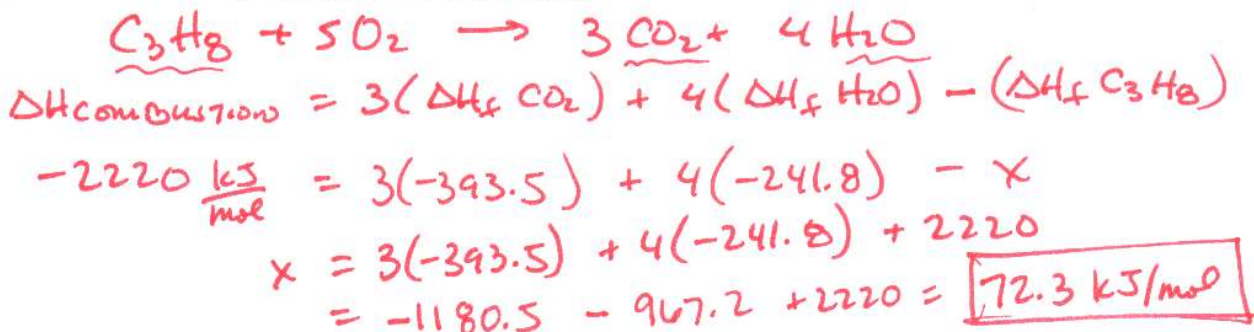 C₃H₈ + 5O₂ → 3 CO₂ + 4 H₂O
ΔHCOMBUSTION = 3(ΔHf CO₂) + 4(ΔHf H₂O) - (ΔHf C₃H₈)
-2220 kJ/mol = 3(-393.5) + 4(-241.8) - x
x = 3(-393.5) + 4(-241.8) + 2220
= -1180.5 - 967.2 + 2220 = 72.3 kJ/mol